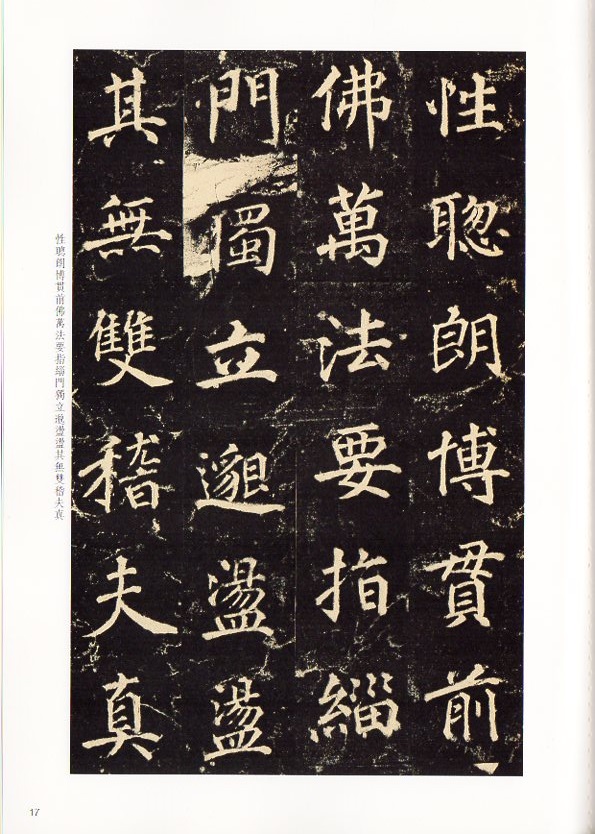 性聰朗博貫前
佛萬法要指緇
門獨立邈盪盪
其無雙稽夫真
性聰朗博貫前佛萬法要指緇門獨立邈盪盪其無雙稽夫真
17